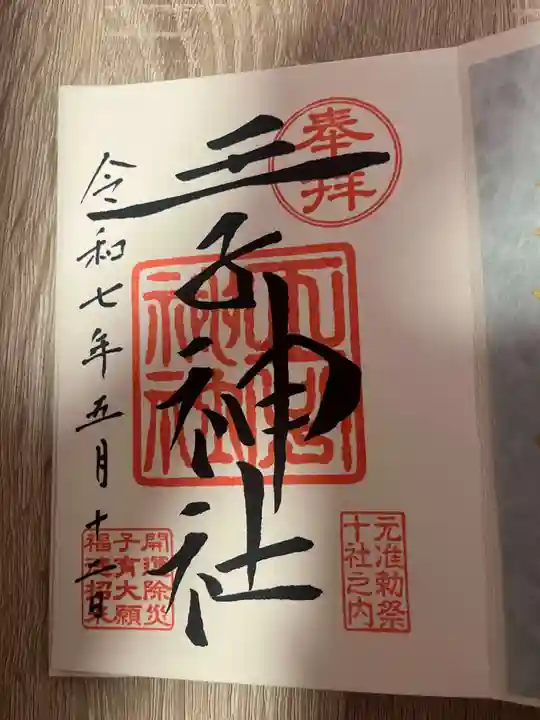 奉拝
王子神社
王子神社
元准勅祭
十社之内
令和七年五月十二日
開運除災
子育大願
福徳招来